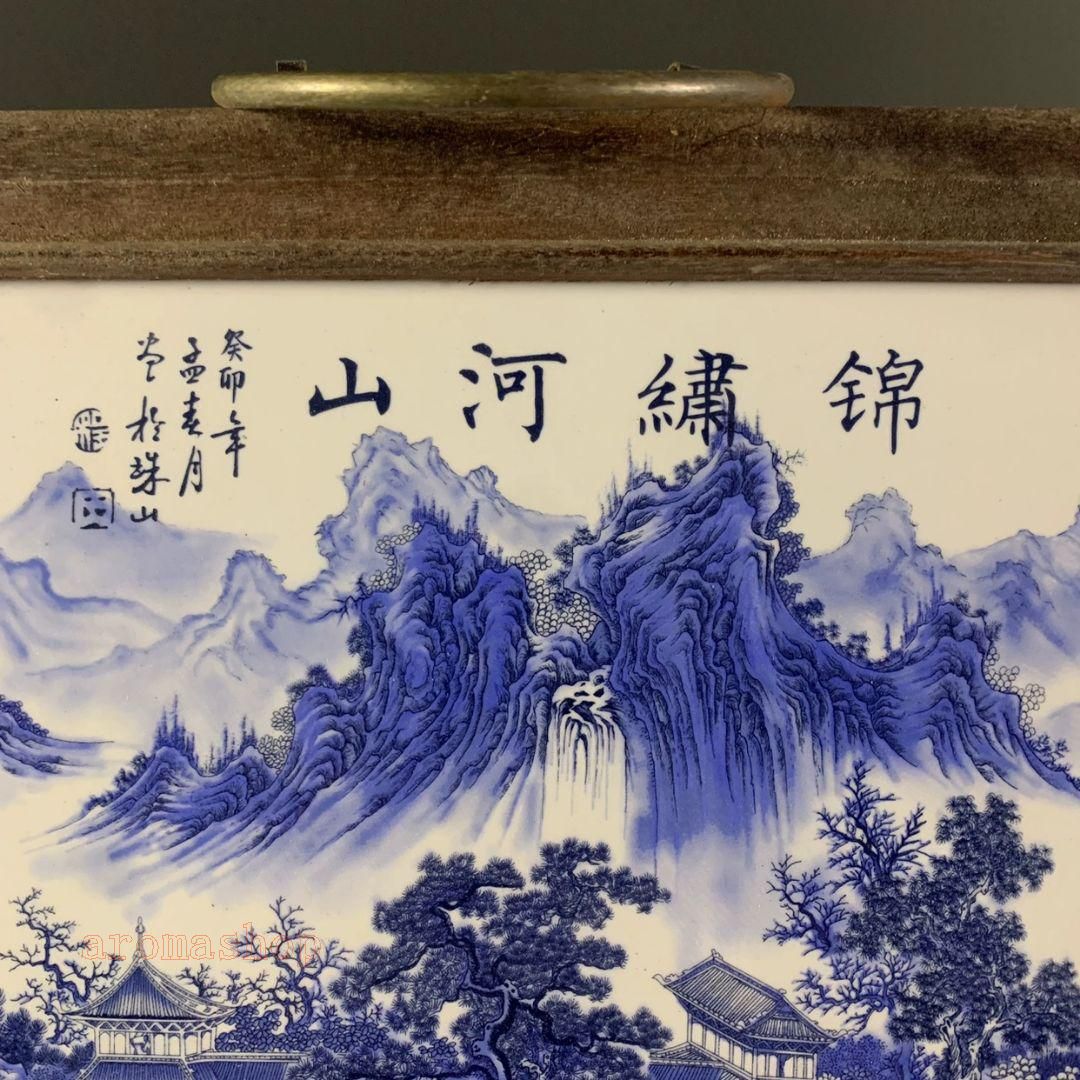 锦繡河山
癸卯年
孟春月
於珠山
aromashop